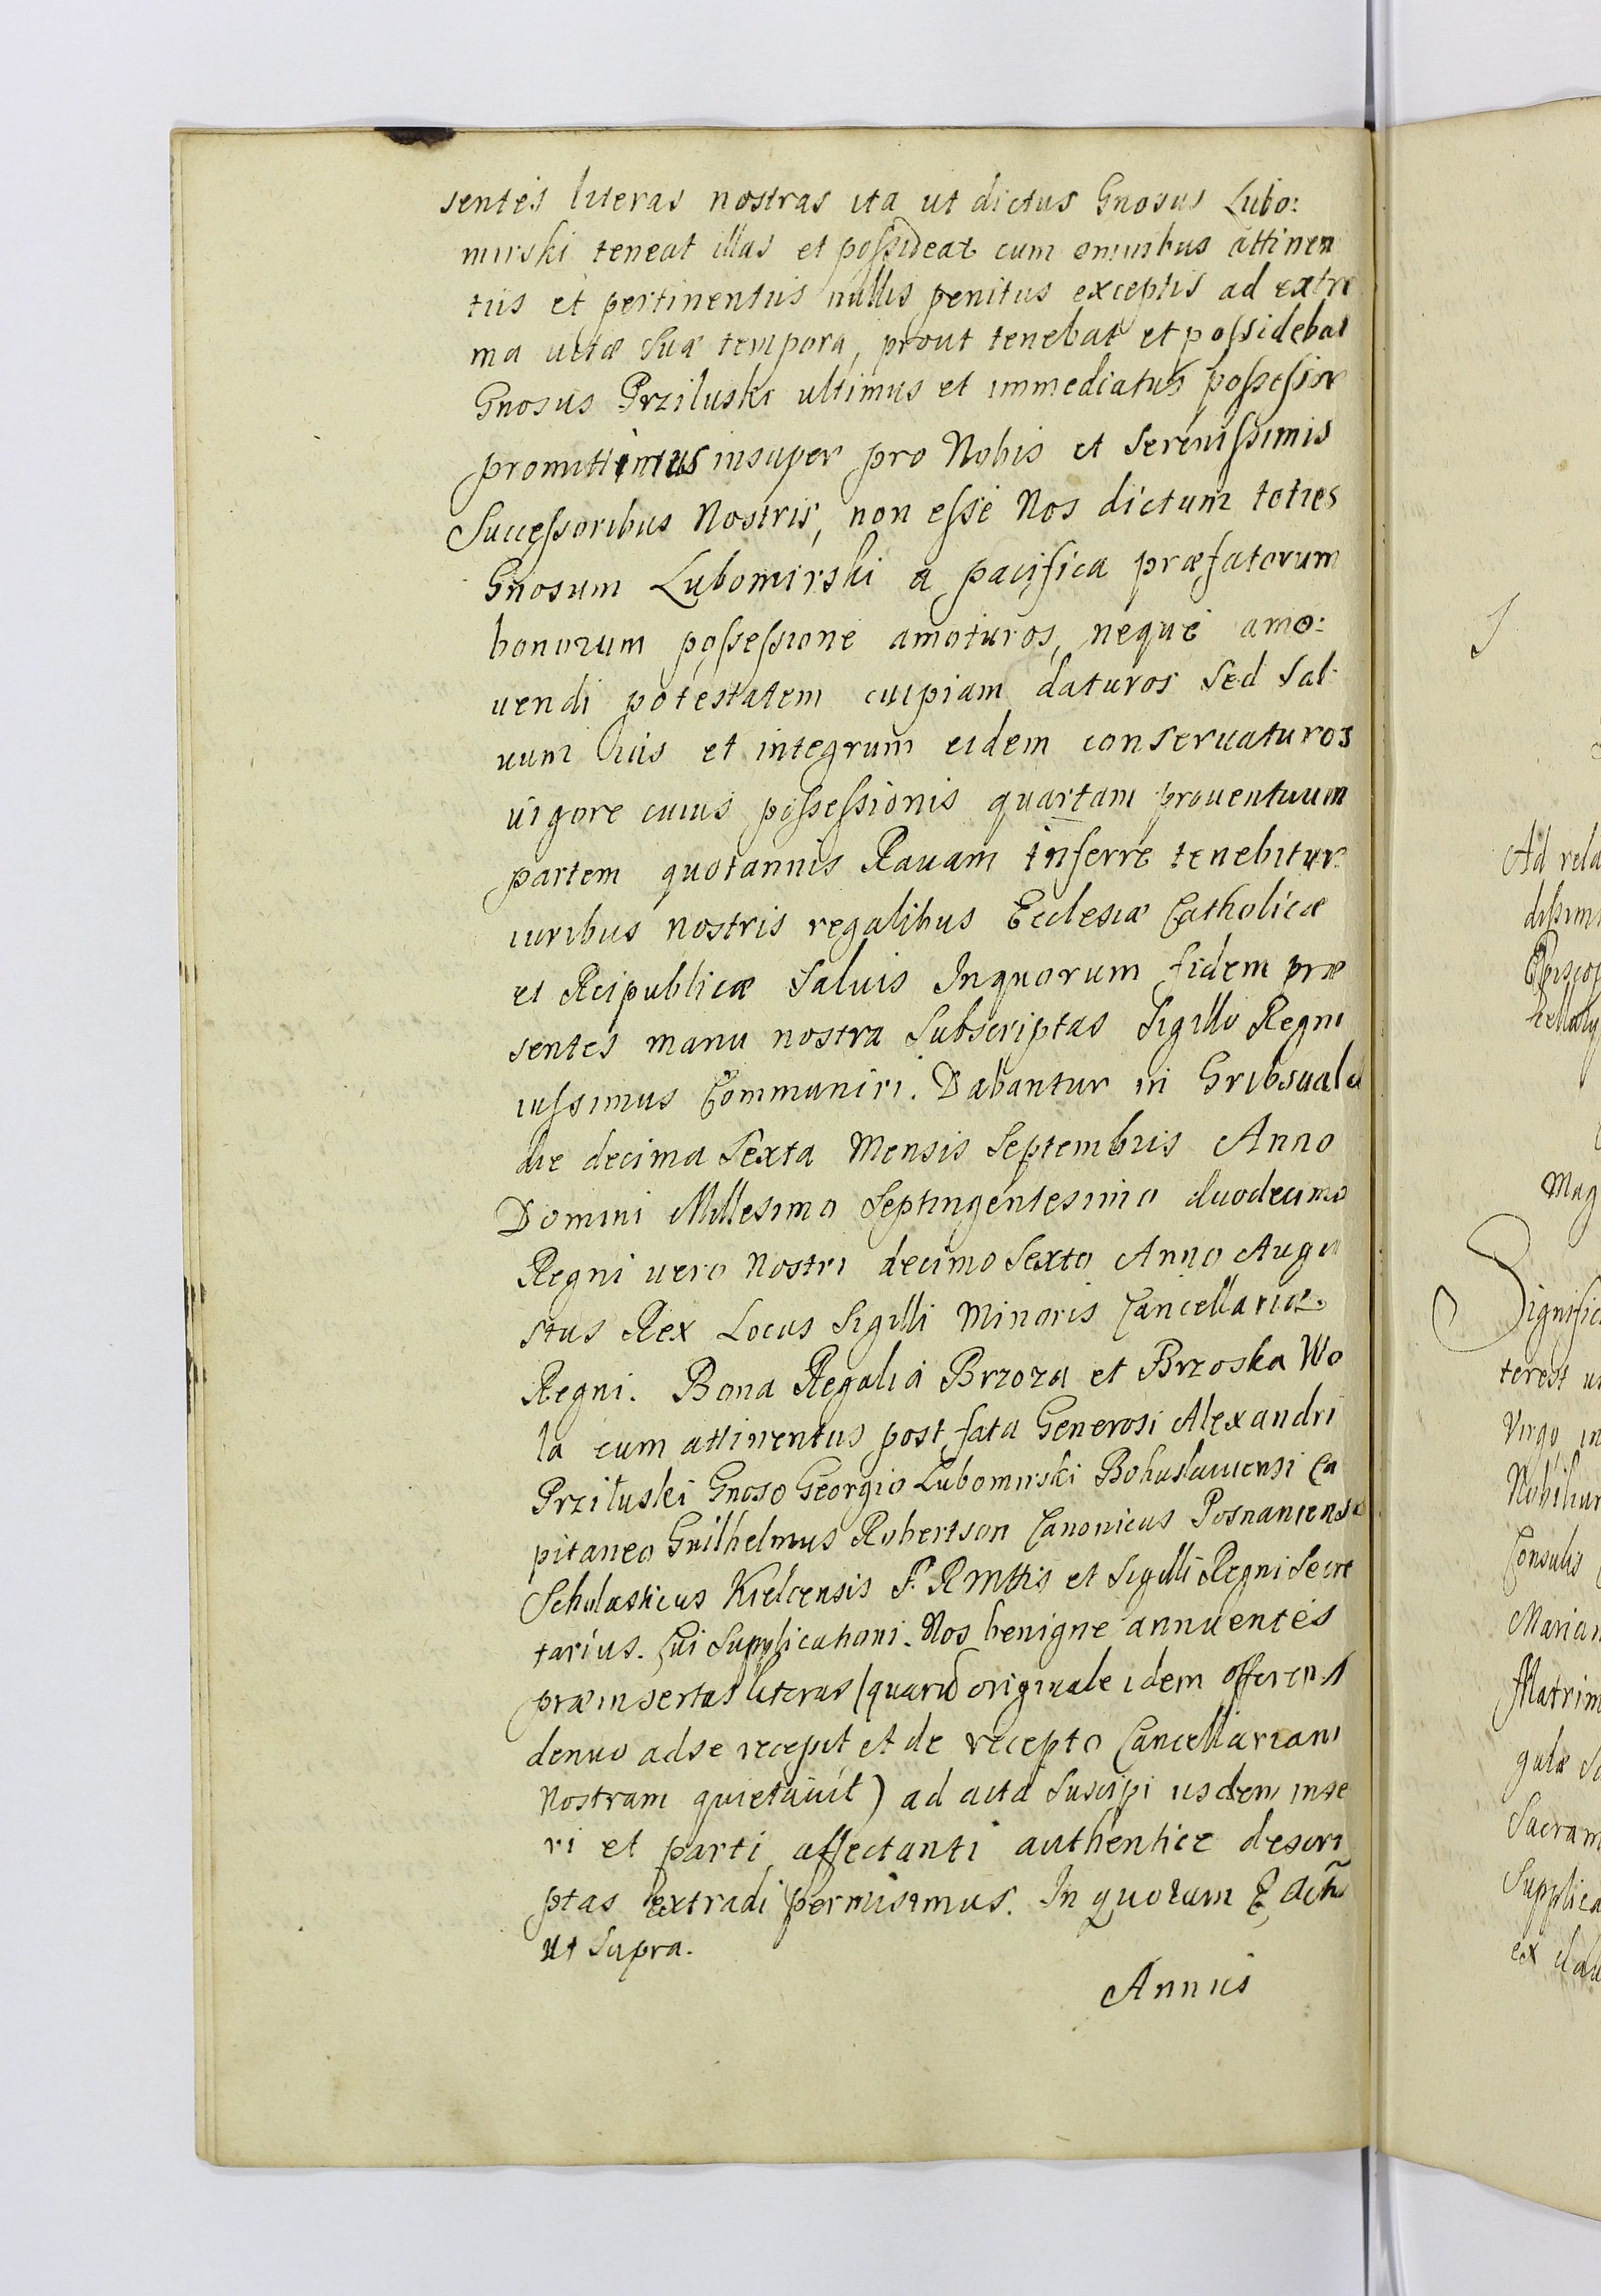 sentes literas nostras ita ut dictus Gnosus Lubo:
mirski teneat illas et possideat cum omnibus attinen
tiis et pertinentiis nullis penitus exceptis ad extre
ma uitæ suæ tempora, prout tenebat et possidebat
Gnosus Prziluski ultimus et immediatus possessor
promittimus insuper pro Nobis et Serenissimis
Successoribus Nostris, non esse Nos dictum toties
Gnosum Lubomirski a pacifica præfatorum
bonorum possessione amoturos, neque amo:
uendi potestatem cuipiam daturos Sed Sal
uum ius et integrum eidem conseruaturos
uigore cuius possessionis quartam prouentuum
partem quotannis Rauam inferre tenebitur
iuribus nostris regalibus Ecclesiæ Catholicæ
et Reipublicæ Saluis Inquorum fidem præ
sentes manu nostra Subscriptas Sigillo Regni
iussimus Communiri. Dabantur in Gribsuald
die decima Sexta Mensis Septembris Anno
Domini Millesimo Septingentesimo duodecimo
Regni uero Nostri decimo Sexto Anno Augu
stus Rex Locus Sigilli Minoris Cancellariæ
Regni. Bona Regalia Brzoza et Brzoska Wo
la cum attinentiis post fata Generosi Alexandri
Prziłuski Gnoso Georgio Lubomirski Bohuslauiensi Ca
pitaneo Guilhelmus Robertson Canonicus Posnaniensis
Scholasticus Kielcensis S. R Mttis et Sigilli Regni Secre
tarius. Cui Supplicationi. Nos benigne annuentes
præinsertas literas (quarū originale idem offerens
denuo adse recepit et de recepto Cancellariam
Nostram quietauit) ad acta Suscipi iisdem inse
ri et parti affectanti authentice descri
ptas extradi permisimus. In quorum &
ut Supra.
Annus
Ad rela
dissimi
Episcop
Mag
Signific
terest
Virgo in
Nobilium
Consulis
Marian
Matrim
Sacram
Supplica